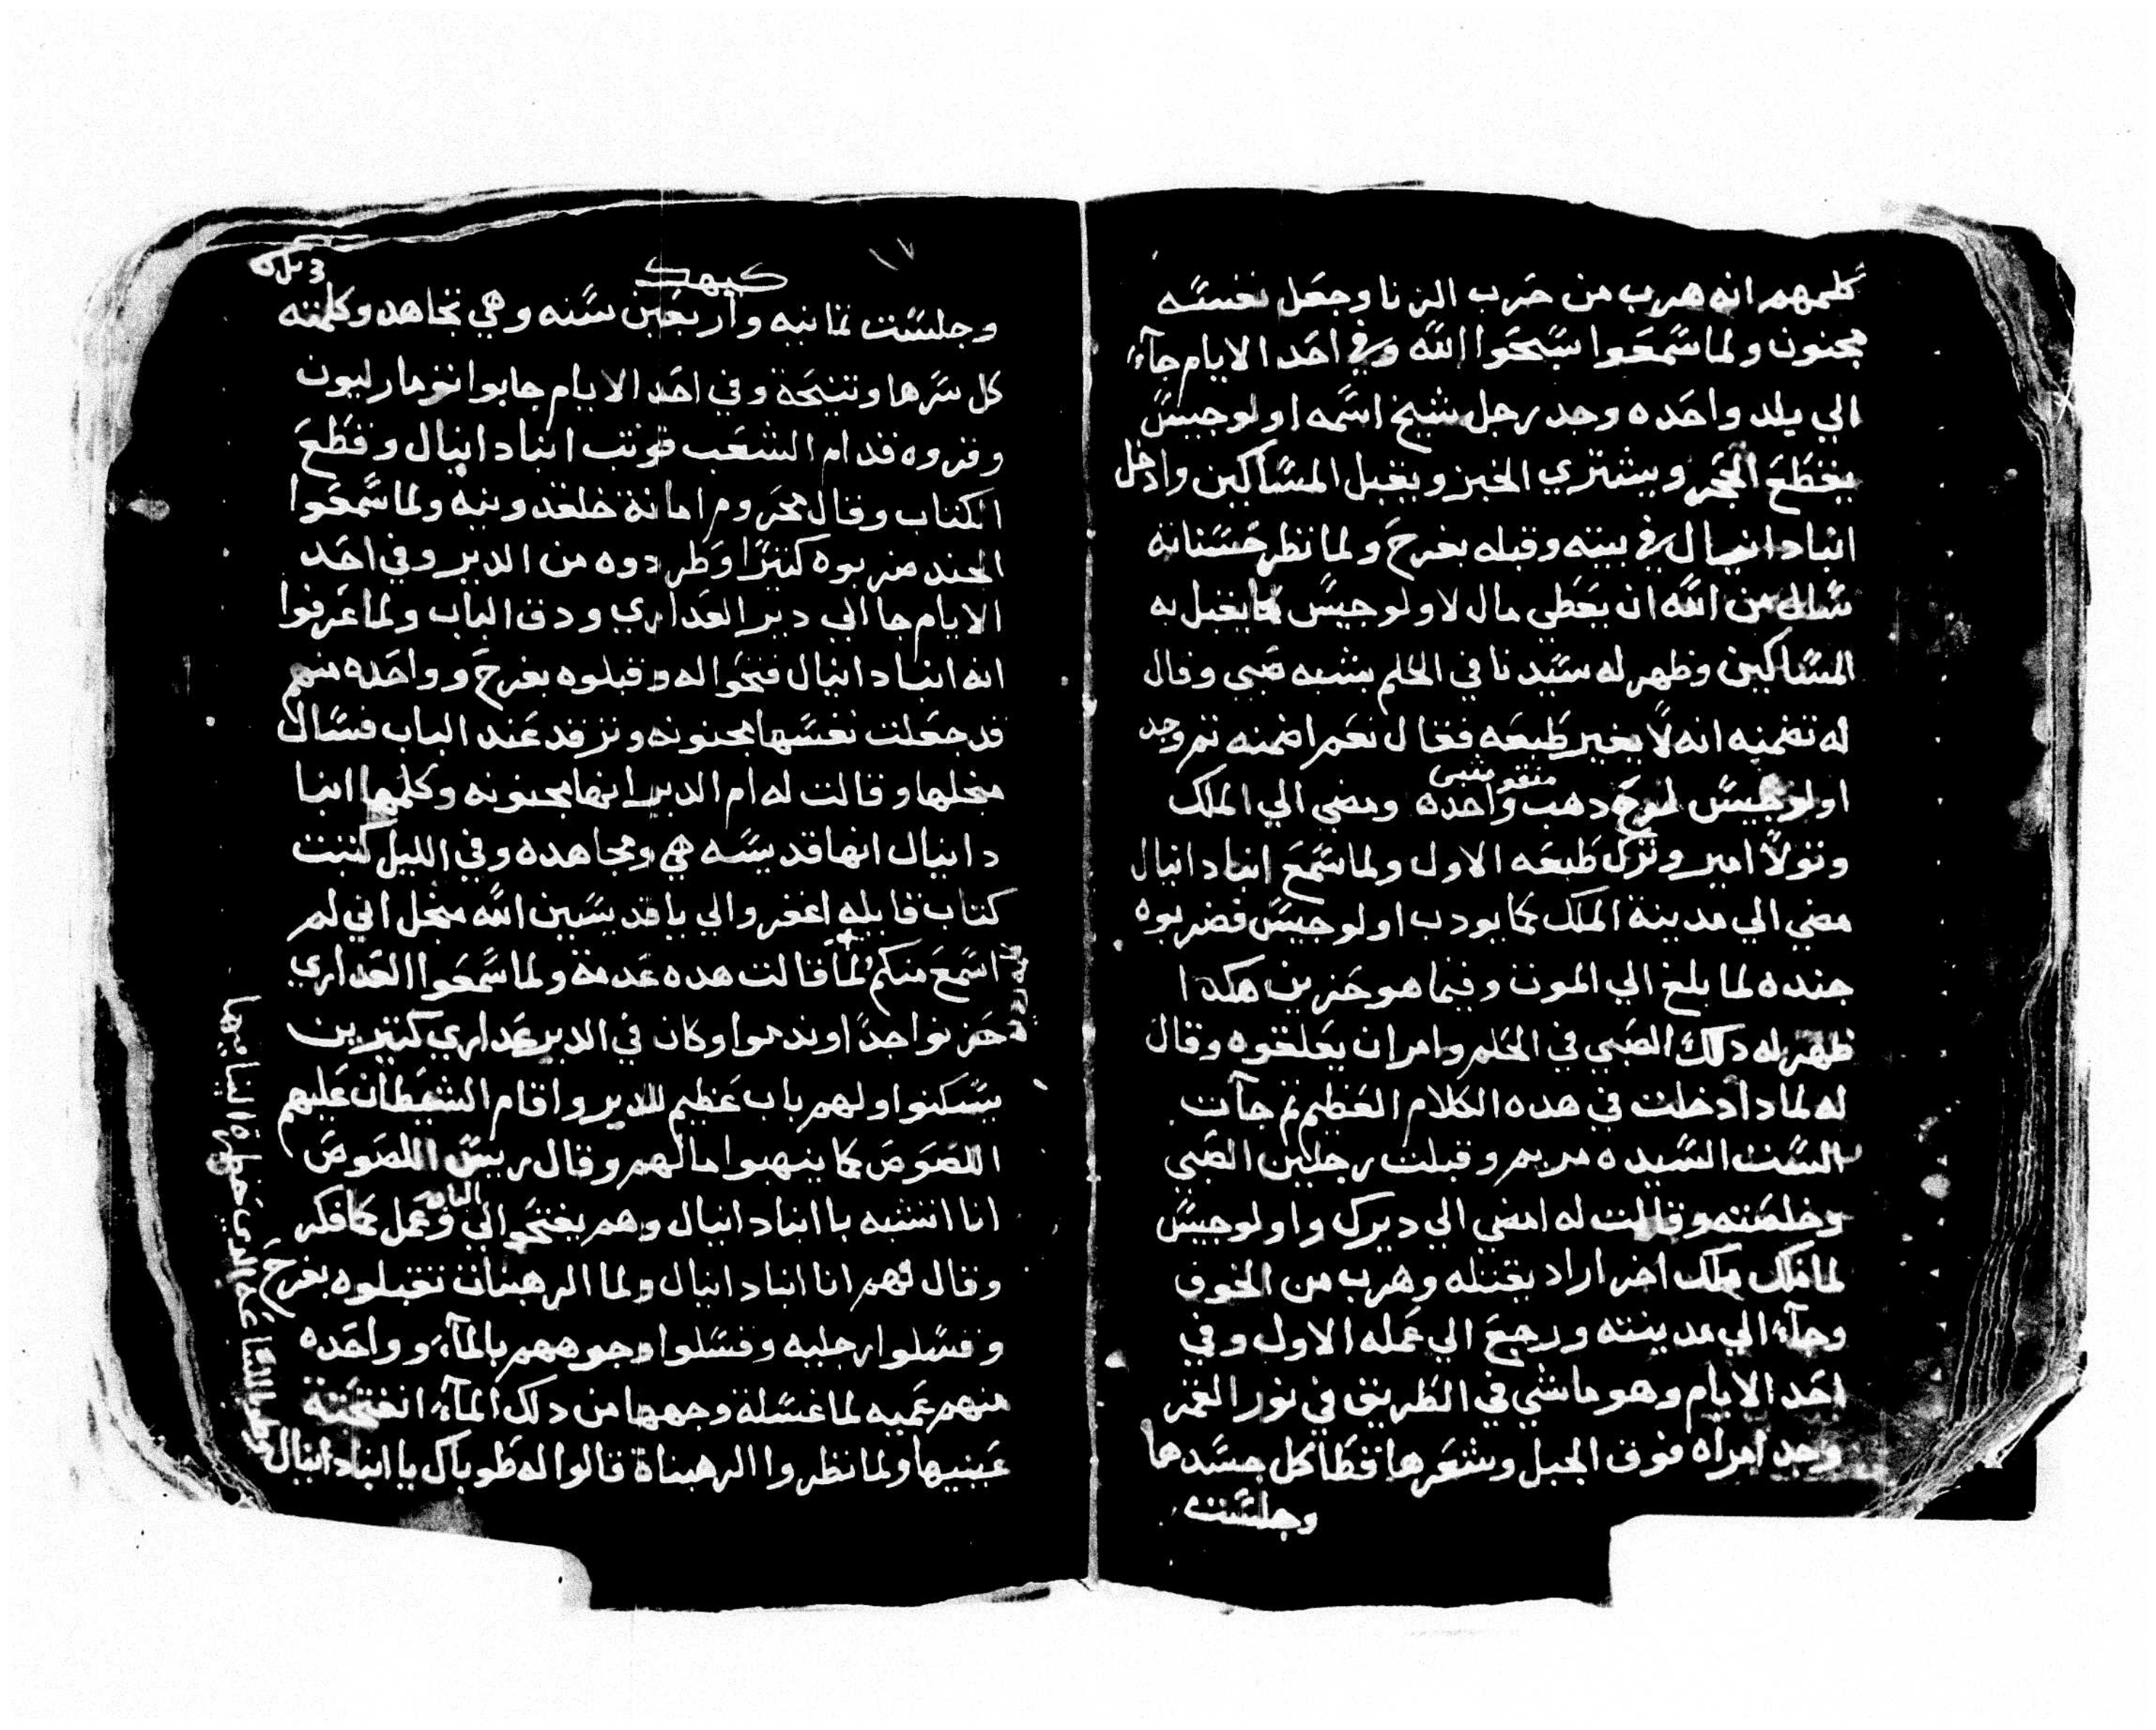 كلمهم انه هرب من حرب الزنا وجعل نفسه
مجنون ولما سمعوا سبحوا الله وفي احد الايام جآء
الي بلد واحده وجد رجل شيخ اسمه اولوجيس
يقطع الحجر ويشتري الخبز ويقبل المساكين وادخل
انبا دانيال في بيته وقبله بفرح ولما نظر حسناته
سال من الله ان يعطي مال لاولوجيس كما يقبل به
المساكين وظهر له سيدنا في الحلم بشبه صبي وقال
له تضمنه انه لا يغير طبعه فقال نعم اضمنه ثم وجد
اولوجيس لوح دهب واحده ومضي الي الملك
وتولا امير وترك طبعه الاول ولما سمع انبا دانيال
مضي الي مدينة الملك كما يودب اولوجيس فضربوه
جنده لما بلغ الي الموت وفيما هو حزين هكدا
ظهر له دلك الصبي في الحلم وامر ان يعلقوه وقال
له لمادا دخلت في هده الكلام العظيم ثم جآت
الست السيده مريم وقبلت رجلين الصبي
وخلصته وقالت له امضي الي ديرك واولوجيس
لما ملك ملك اخر اراد يقتله وهرب من الخوف
وجآء الي مدينته ورجع الي عمله الاول وفي
احد الايام وهو ماشي في الطريق في نور القمر
وجد امراه فوق الجبل وشعرها قطا كل جسدها
وجلست
كيهك
وجلست تمانيه واربعين سنه وهي تجاهد وكلمته
كل سرها وتنيحة وفي احد الايام جابوا نوما رليون
وقروه قدام الشعب فوتب انبا دانيال وقطع
الكتاب وقال محروم امانة خلقدونيه ولما سمعوا
الجند ضربوه كتيرًا وطردوه من الدير وفي احد
الايام جا الي دير العداري ودق الباب ولما عرفوا
انه انبا دانيال فتحوا له وقبلوه بفرح وواحده منهم
قد جعلت نفسها مجنونه وترقد عند الباب فسال
مخلها وقالت له ام الدير انها مجنونه وكلمها انبا
دانيال انها قديسه هي ومجاهده وفي الليل كتبت
كتاب قايله اغفروا لي يا قديسين الله مخل اني لم
اسمع منكم لما قالت هده عدمة ولما سمعوا العداري
حزنوا جدًا وندموا وكان في الدير عداري كتيرين
يسكنوا ولهم باب عظيم للدير واقام الشيطان عليهم
اللصوص كما ينهبوا مالهم وقال ريس اللصوص
انا اتشبه با انبا دانيال وهم يفتحوا لي الباب وعمل كما فكر
وقال لهم انا انبا دانيال ولما الرهبنات تقبلوه بفرح
وغسلوا رجليه وغسلوا وجوههم بالمآء وواحده
منهم عميه لما غسلة وجهها من دلك المآء انفتحة
عينيها ولما نظروا الرهبناة قالوا له طوباك يا انبا دانيال